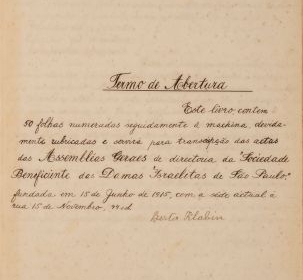 Termo de Abertura
Este livro contem
50 folhas numeradas seguidamente á machina, devida-
mente rubricadas e servirá para transcripção das actas
das Assembléas Geraes de directoria da "Sociedade
Beneficente das Damas Israelitas de São Paulo,"
fundada em 15 de Junho de 1915, com a séde actual á
rua 15 de Novembro,
Berta Klabin